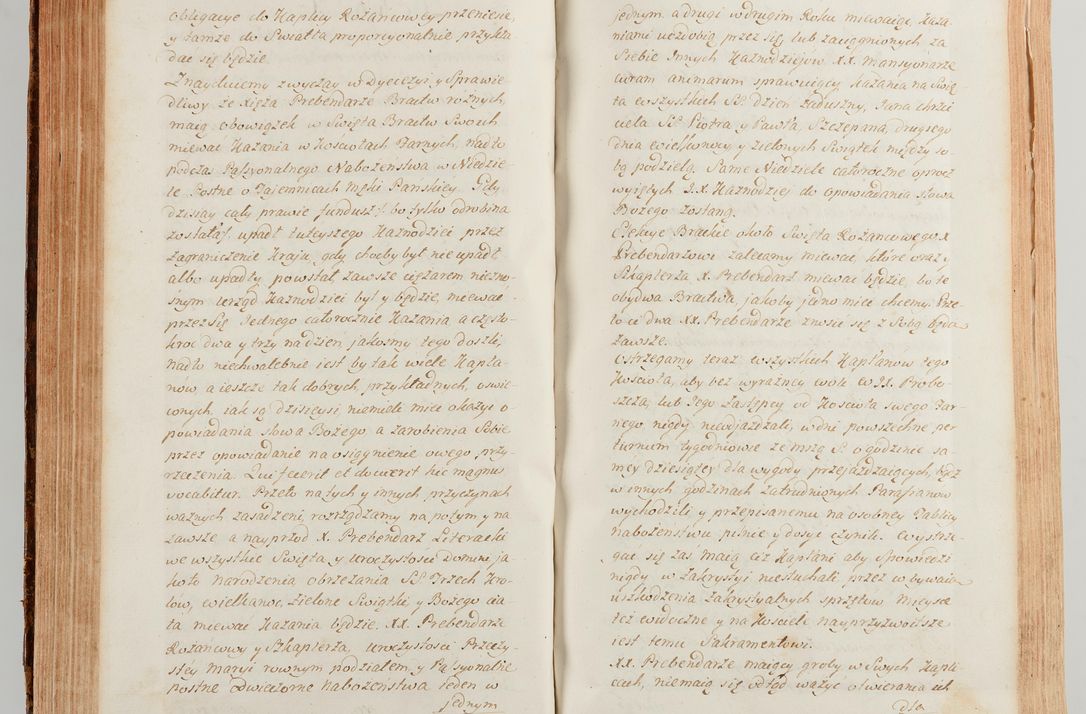 obligacye do Kaplicy Rożancowey przeniesie,
y tamże do Swiatła proporcyonalnie przykła
dac się będzie
Znayduiemy zwyczay w Dyecezyi y Sprawie
dliwy że Xięża Prebendarze Bractw rożnych,
maią obowiązek w Swięta Bractw Swoich
miewać Kazania w Kosciołach Farnych, nadto
podczas Passyonalnego Nabożenstwa w Niedzie
le Postne o Tajemnicach Męki Panskiey. Gdy
dzisiay cały prawie fundusz /: bo tylko odrobina
została :/ upadł tuteyszego Kaznodziei przez
Zagraniczenie Kraju, gdy choćby był nie upadł
albo upadły powstał, zawsze ciężarem niezno
snym urząd Kaznodziei był y będzie, miewać
przez Się Jednego całorocznie Kazania, a często
kroc dwa y trzy na dzien, jakosmy tego doszli,
nadto niechwalebnie iest by tak wiele Kapła
now, a ieszcze tak dobrych, przykładnych, oswie
conych, iak są dzisieysi, niemieli miec okazyi o
powiadania słowa Bożego a zarobienia Sobie
przez opowiadanie na osiągnienie owego przy
rzeczenia. Qui fecerit et docuerit hic magnus
vocabitur. Przeto na tych y innych przyczynach
ważnych zasadzeni, rozrządzamy na potym y na
zawsze, a nayprzod X. Prebendarz Literacki
we wszystkie Swięta y Uroczystosci Domini ja
koto narodzenia obrzezania SS. Trzech Kro
low, wielkanoc, Zielone Swiątki y Bożego cia
ła miewać Kazania będzie. XX. Prebendarze
Rożancowy y Szkaplerza, Uroczystosci Przeczy
stey Maryi rownym podziałem, y Passyonalne
Postne Odwieczorne Nabożenstwa Jeden w
jednym
jednym a drugi w drugim Roku miewaiąc, Kaza
niami uczdobią przez się lub zaciągnionych za
Siebie Innych Kaznodziejow. XX. Mansyonarze
curam animarum sprawuiący Kazania na Swię
ta wszystkich SS. dzien zaduszny, Jana chrzci
ciela SS. Piotra y Pawła, Szczepana, drugiego
dnia wielkonocy y zielonych Swiątek między so
bą podzielą. Same Niedziele całoroczne oprocz
wyiętych J.X. Kaznodziey do opowiadania słowa
Bożego zostaną.
Elekcye Brackie około Swięta Rożancowego X.
Prebendarzowi zalecamy miewać, ktore wraz y
Szkaplerza X. Prebendarz miewać będzie, bo te
obydwa Bractwa, jakoby jedno mieć chcemy. Prze
to ci dwa XX. Prebendarze znosić się z Sobą będą
zawsze.
Ostrzegamy teraz wszystkich Kapłanow tego
Koscioła, aby bez wyrazney woli W JX. Probo
szcza, lub Jego Zastępcy od Koscioła swego Far
nego nigdy nieodjazdzali, w dni powszechne per
turnum tygodniowie ze mszą S. o godzinie sa
mey dziesiątey dla wygody przejazdzaiących, bądz
w innych godzinach zatrudnionych Parafianow
wychodzili y przepisanemu na osobney Tablicy
nabożenstwu pilnie y dosyc czynili. Wystrze
gać się zas maią ciż Kapłani aby Spowiedzi
nigdy w Zakrystyi niesłuchali przez co bywaią
uszkodzenia Zakrystyalnych sprzętow. Mieysce
też widoczne y na Kosciele nayprzyzwoitsze
iest temu Sakramentowi.
XX. Prebendarze maiący groby w Swych Kapli
cach, niemaią się odtąd ważyć otwierania ich
dla